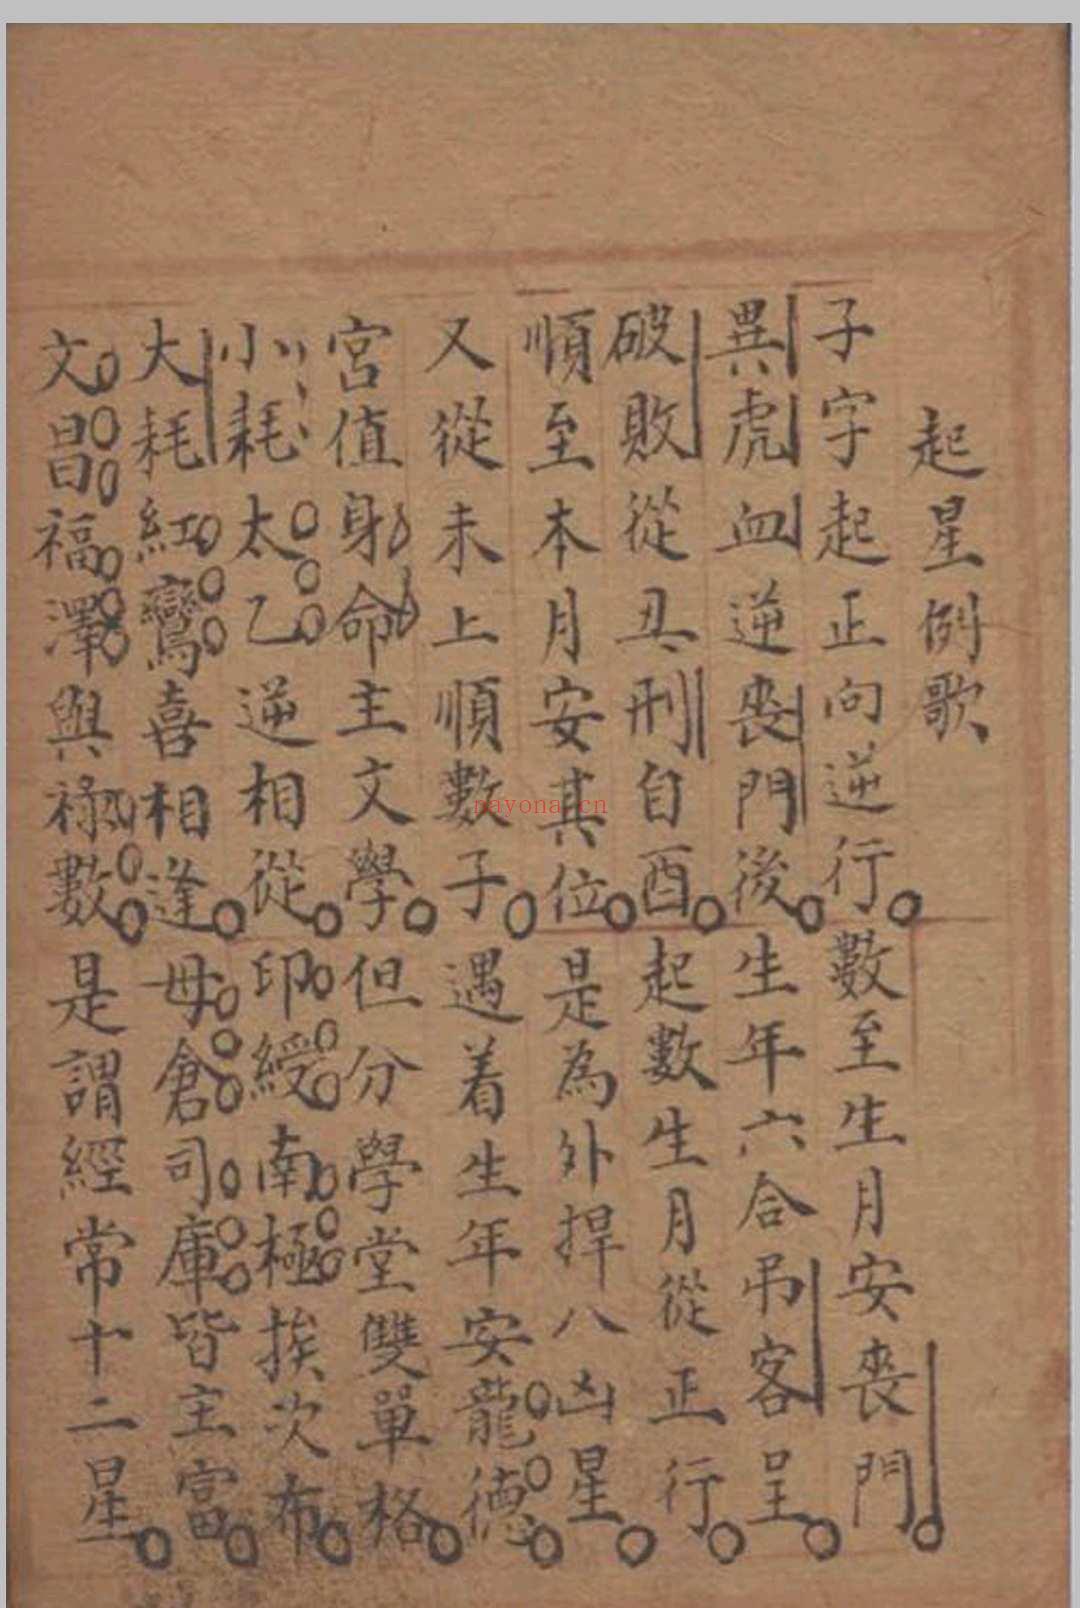 起星例歌
子字起正向逆行數至生月安喪門
異虎血逆喪門後生年六合吊客呈
破敗從丑刑自酉起數生月從正行
順至本月安其位是為外捍八凶星
又從未上順數子遇着生年安龍德
宮值身命主文學但分學堂雙單格
小耗太乙逆相從印綬南極挨次布
大耗紅鸞喜相逢毋倉司庫皆主富
文昌福澤與祿數是謂經常十二星
nayona.cn